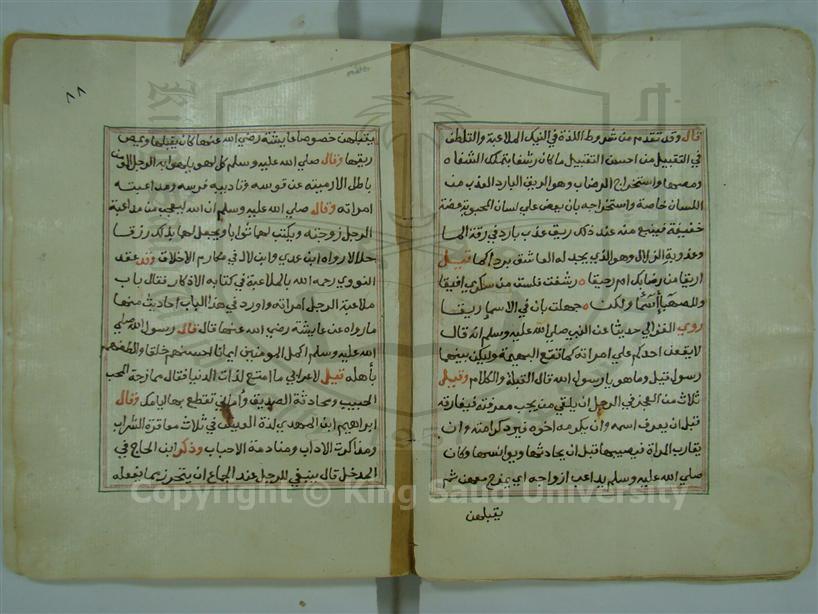 قال وقد تقدم من شروط اللذة في النيك الملاعبة والتلطف
في التقبيل من احسن التقبيل ما كان رشفا بتمكك الشفاه
ومصها واستخراج الرضاب وهو الريق البارد العذب من
اللسان خاصة واستخراجه بان يعض علي لسان المحبوبة عضة
خفيفة فينبع من عند ذلك ريق عذب بارد في رقة الما
وعذوبة الزلال وهو الذي يجد له العاشق بردا كما قيل
اريقا من رضابك ام رحيقا رشفت فلست من سكري افيقا
وللصهبا أسما ولكن جهلت بان في الاسما ريقا
روي الغزالي حديثا عن النبي صلي الله عليه وسلم انه قال
لا يقعن احدكم علي امراته كما تقع البهيمة وليكن بينهما
رسول قيل وما هو يا رسول الله قال القبلة والكلام وقيل
ثلاث من العجز في الرجل ان يلقي من يحب معرفته فيفارقه
قبل ان يعرف اسمه وان يكرمه اخوه فيرد كرامته وان
يقارب المراة فيصيبها قبل ان يحادثها ويوانسها وكان
صلي الله عليه وسلم يداعب ازواجه اي يمزح معهن ثم
يقبلهن
٨٨
يقبلهن خصوصا عايشة رضي الله عنها كان يقبلها ويمص
ريقها وقال صلي الله عليه وسلم كل لهو يلهو به الرجل
باطل الا رميته عن قوسه وتاديبه فرسه ومداعبته
امراته وقال صلي الله عليه وسلم ان الله ليعجب من مداعبة
الرجل زوجته ويكتب لهما ثوابا ويجعل لهما بذلك رزقا
حلالا رواه ابن عدي وابن لال في مكارم الاخلاق وقد عقد
النووي رحمه الله بالملاعبة في كتابه الاذكار فقال باب
ملاعبة الرجل امراته واورد في هذا الباب احاديث منها
ما رواه عن عايشة رضي الله عنها قال قال رسول الله صلي
الله عليه وسلم اكمل المومنين ايمانا احسنهم خلقا والطفهم
بأهله قيل لاعرابي ما امتع لذات الدنيا فقال ممازحة المحب
الحبيب ومحادثة الصديق واماني تقطع بها ايامك وقال
ابراهيم ابن المهدي لذة العيش في ثلاث معاقرة الشراب
ومذاكرت الاداب ومنادمة الاحباب وذكر ابن الحاج في
المدخل قال ينبغي للرجل عند الجماع ان يتحرز مما يفعله
Copyright © King Saud University
1957